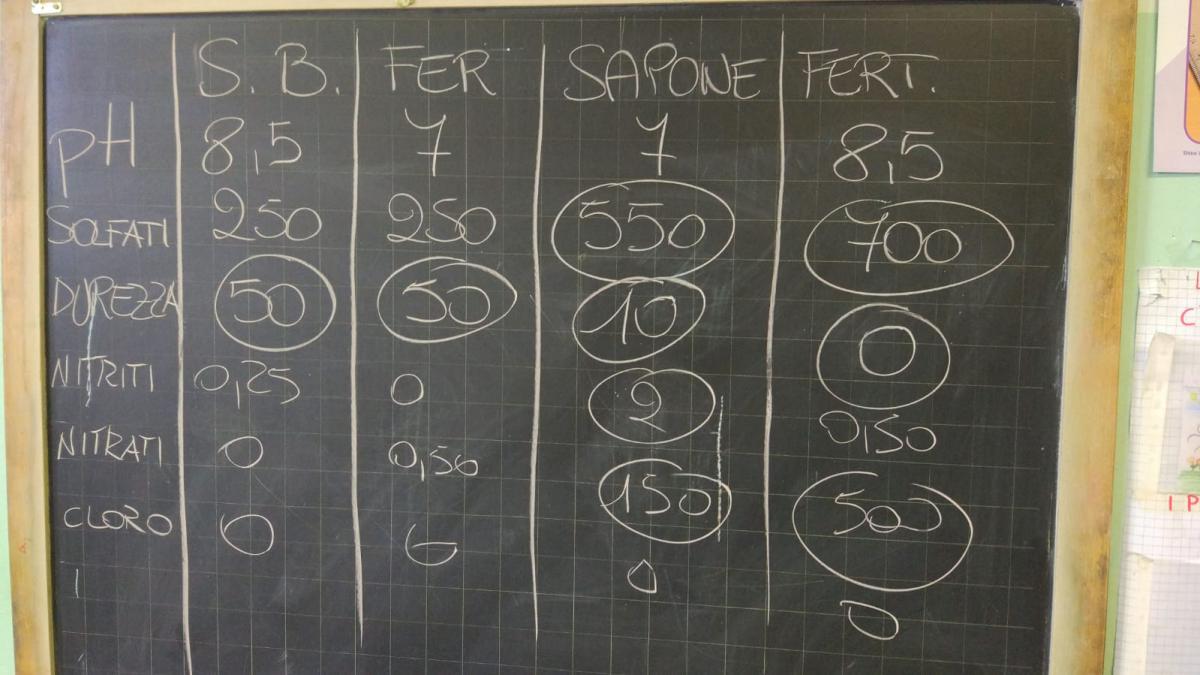 S. B. FER SAPONE FERT.
pH 8,5 7 7 8,5
SOLFATI 250 250 550 700
DUREZZA 50 50 10 0
NITRITI 0,25 0 2 0,50
NITRATI 0 0,50 150 500
CLORO 0 0 0 0